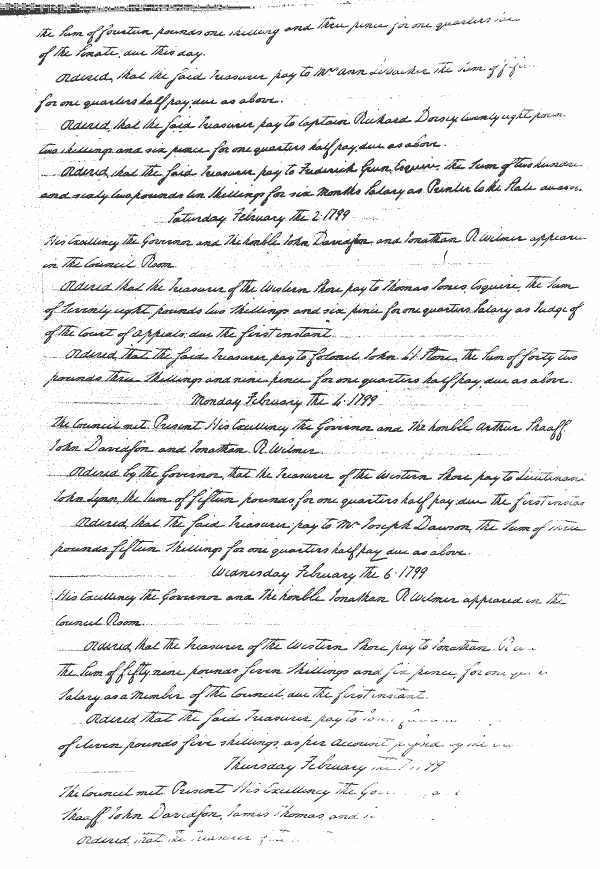 the Sum of fourteen pounds one shilling and three pence for one quarters
of the Senate, due this day.
Ordered, that the said Treasurer pay to Mrs Ann the Sum of
for one quarters half pay, due as above.
Ordered, that the said Treasurer pay to Captain Richard Dorsey twenty eight poun
two shillings and six pence for one quarters half pay, due as above.
Ordered, that the said Treasurer pay to Frederick Green, Esquire, the Sum of two hundre
and sixty two pounds ten Shillings for six Months Salary as Printer to the State due as
Saturday February the 2. 1799
His Excellency the Governor and the honble John Davidson, and Jonathan R. Wilmer appeare
in the Council Room.
Ordered that the Treasurer of the Western Shore pay to Thomas Jones, Esquire, the Sum
of Seventy eight pounds two Shillings and six pence for one quarters Salary as Judge of
of the Court of Appeals, due the first instant
Ordered, that the said Treasurer pay to Colonel John H. Stone, the Sum of forty two
pounds three Shillings and nine pence for one quarters half pay, due as above.
Monday February the 4. 1799
The Council met. Present His Excellency the Governor and The honble Arthur Shaaff
John Davidson and Jonathan R. Wilmer
Ordered by the Governor, that the Treasurer of the Western Shore pay to Lieutenan
John Lynn, the Sum of fifteen pounds, for one quarters half pay, due the first instan
Ordered, that the said Treasurer pay to Mr Joseph Dawson, the Sum of three
pounds, fifteen Shillings for one quarters half pay due as above.
Wednesday February the 6. 1799
His Excellency the Governor and the honble Jonathan R. Wilmer appeared in the
Council Room.
Ordered, that the Treasurer of the Western Shore pay to Jonathan R.
the Sum of fifty nine pounds seven Shillings and six pence, for one
Salary, as a Member of the Council, due the first instant.
Ordered that the said Treasurer pay to
of eleven pounds five shillings, as per Account passed by the
Thursday February the 7. 1799
The Council met Present His Excellency the Go
Shaaff John Davidson, James Thomas and
Ordered, that the Treasurer of the